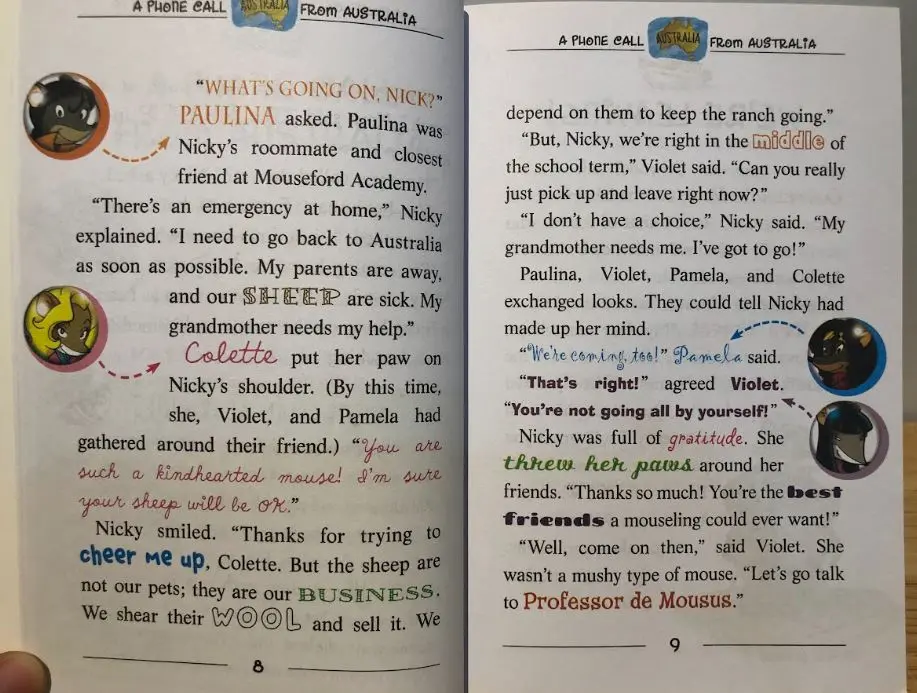 A PHONE CALL AUSTRALIA FROM AUSTRALIA
“WHAT’S GOING ON, NICK?”
PAULINA asked. Paulina was
Nicky’s roommate and closest
friend at Mouseford Academy.
“There’s an emergency at home,” Nicky
explained. “I need to go back to Australia
as soon as possible. My parents are away,
and our SHEEP are sick. My
grandmother needs my help.”
Colette put her paw on
Nicky’s shoulder. (By this time,
she, Violet, and Pamela had
gathered around their friend.) “You are
such a kindhearted mouse! I’m sure
your sheep will be OK.”
Nicky smiled. “Thanks for trying to
cheer me up, Colette. But the sheep are
not our pets; they are our BUSINESS.
We shear their WOOL and sell it. We
8
A PHONE CALL AUSTRALIA FROM AUSTRALIA
depend on them to keep the ranch going.”
“But, Nicky, we’re right in the middle of
the school term,” Violet said. “Can you really
just pick up and leave right now?”
“I don’t have a choice,” Nicky said. “My
grandmother needs me. I’ve got to go!”
Paulina, Violet, Pamela, and Colette
exchanged looks. They could tell Nicky had
made up her mind.
“We’re coming, too!” Pamela said.
“That’s right!” agreed Violet.
“You’re not going all by yourself!”
Nicky was full of gratitude. She
threw her paws around her
friends. “Thanks so much! You’re the best
friends a mouseling could ever want!”
“Well, come on then,” said Violet. She
wasn’t a mushy type of mouse. “Let’s go talk
to Professor de Mousus.”
9